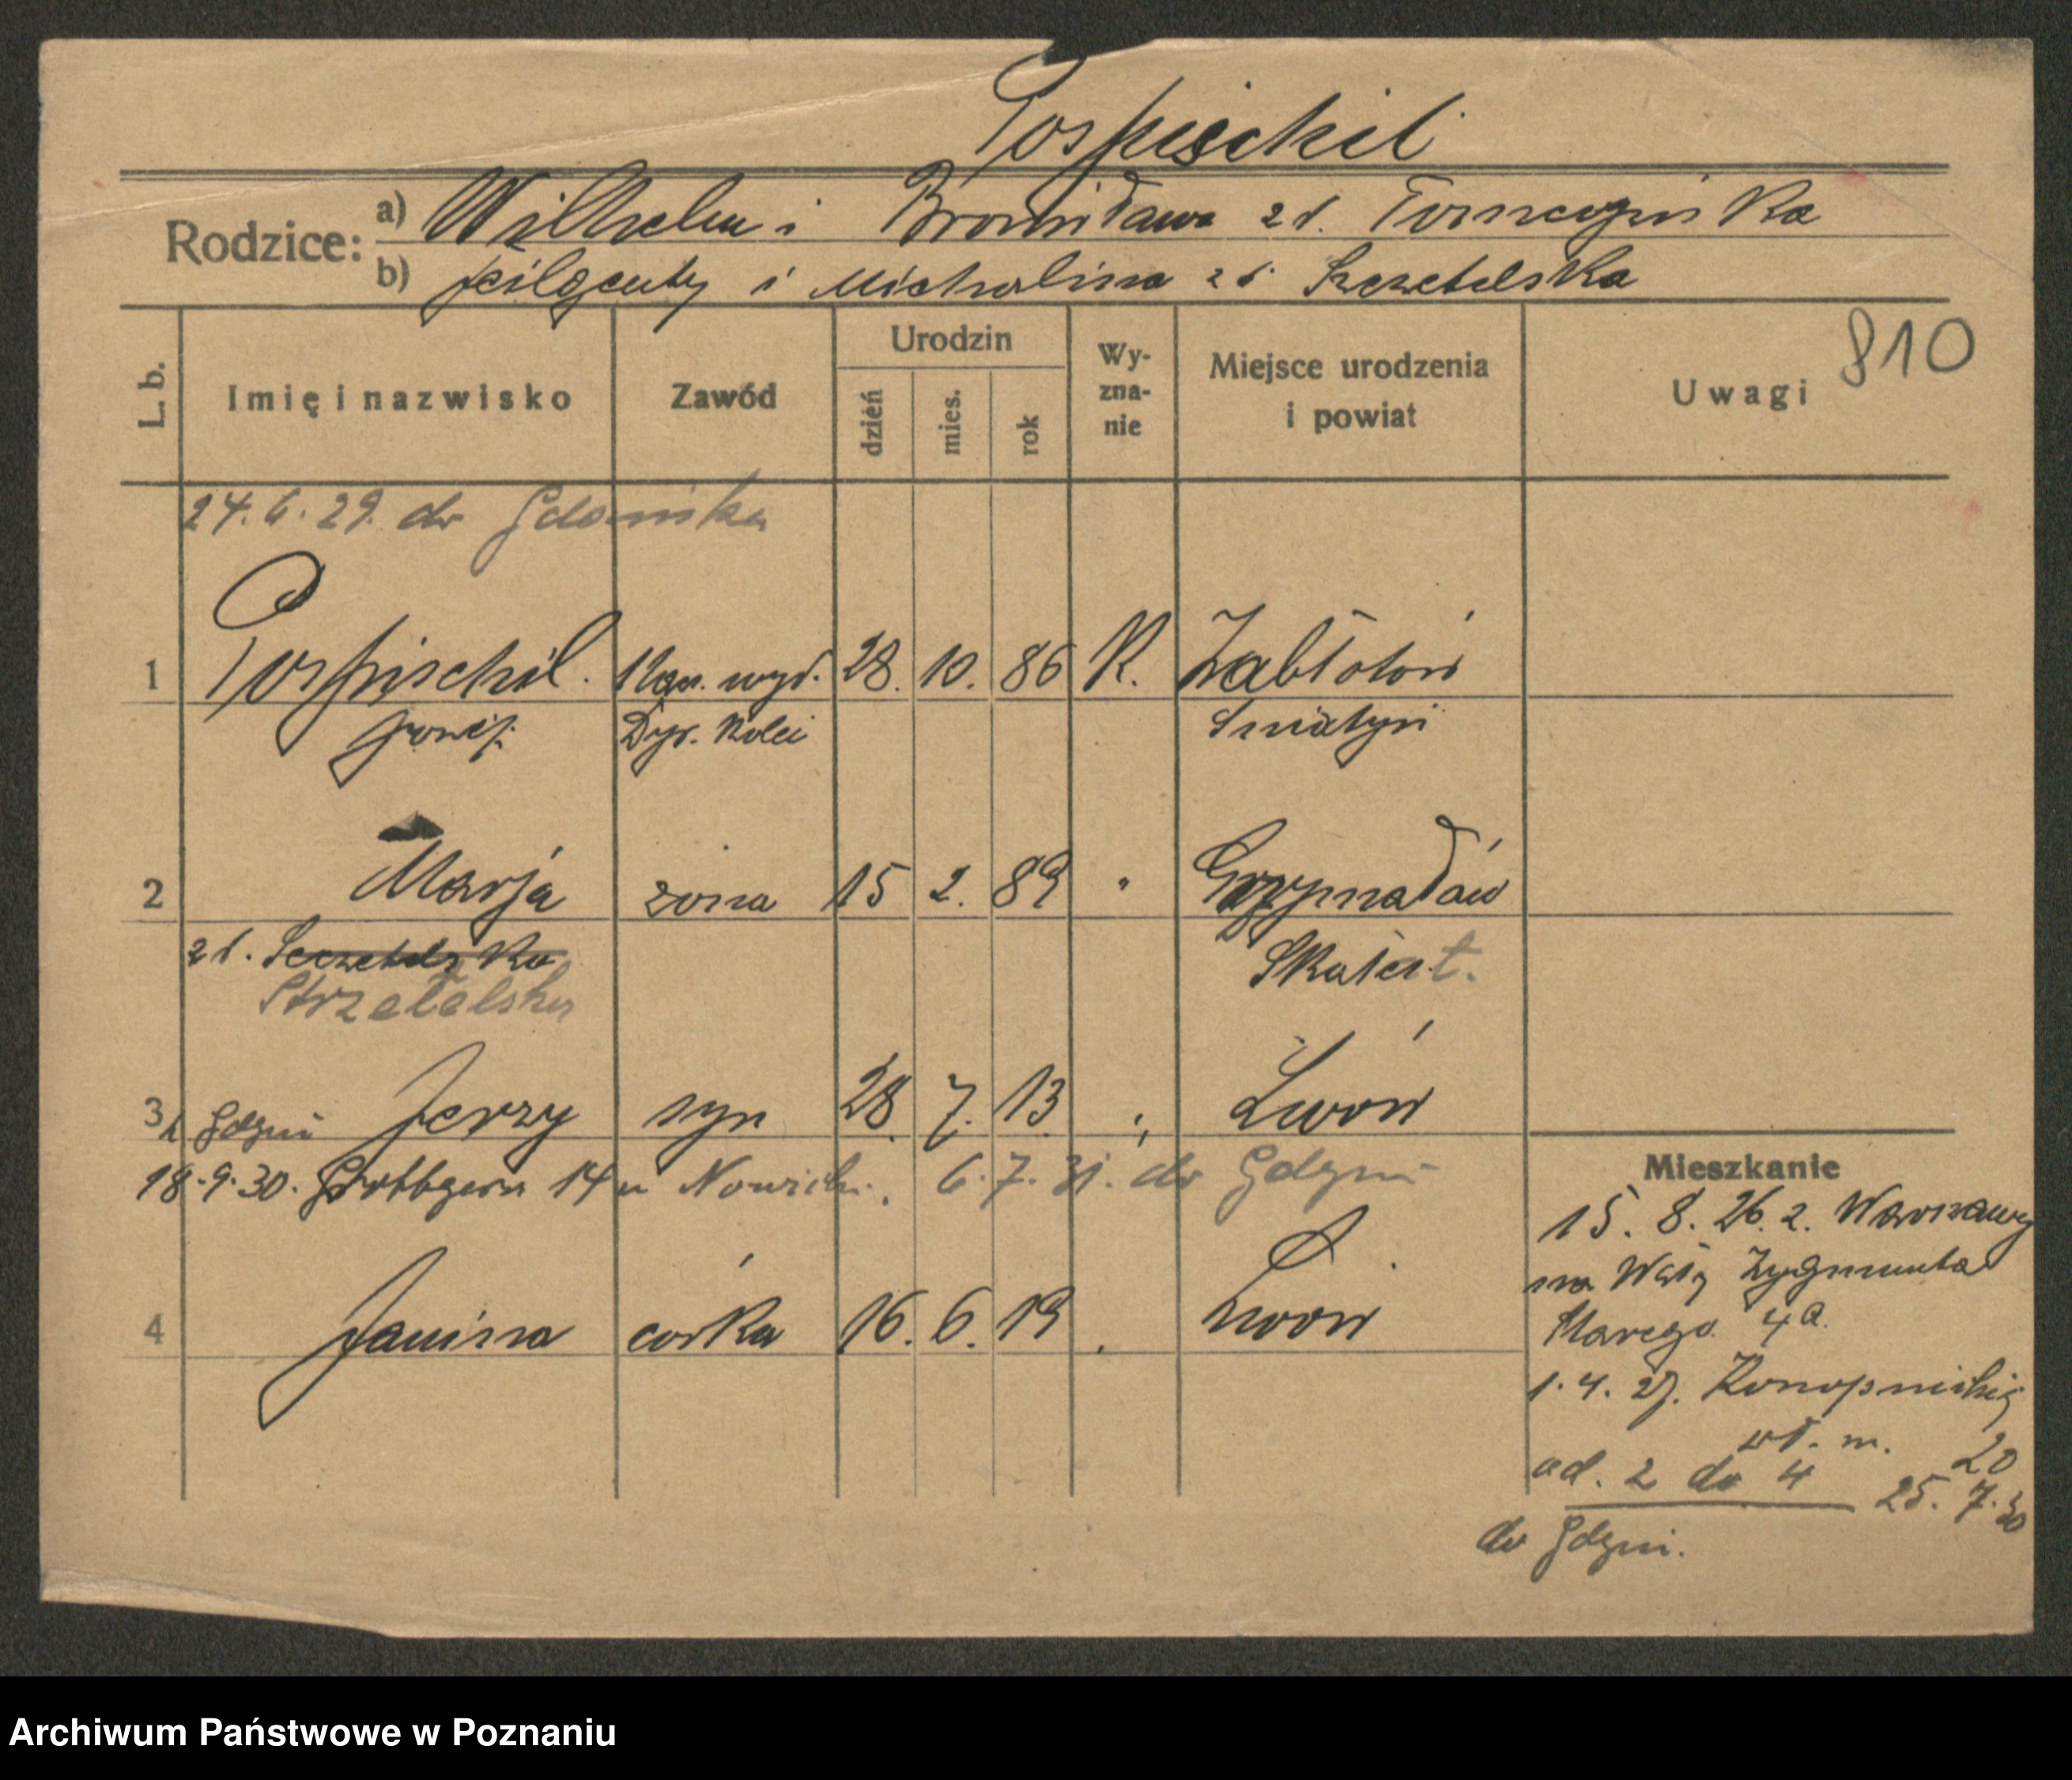 Pospischil
Rodzice: a) Wilhelm i Bronisława zd. Turczyńska
b) i Michalina zd. Szczetelska
L. b. Imię i nazwisko Zawód Urodzin dzień mies. rok Wyznanie Miejsce urodzenia i powiat Uwagi 810
24. 6. 29. do Gdańska
1 Pospischil Naw. wyd. 28. 10. 86 K. Zabłotów
Józef Dyr. Kolei Śniatyń
2 Marja żona 15 2. 89 " Grzymałów
zd. Szczetelska Skałat.
Strzetelska
3 z Gdyni Jerzy syn 28. 7. 13 " Lwów
18. 9. 30. Grottgera 14 u Nowick. 6. 7. 31. do Gdyni
4 Janina córka 16. 6. 19 . Lwów
Mieszkanie
15. 8. 26. z Warszawy
na Wały Zygmunta
Starego 4a.
1. 4. 27. Konopnickiej
wł. m. 20
od. 2 do 4 25. 7. 30
do Gdyni.
Archiwum Państwowe w Poznaniu